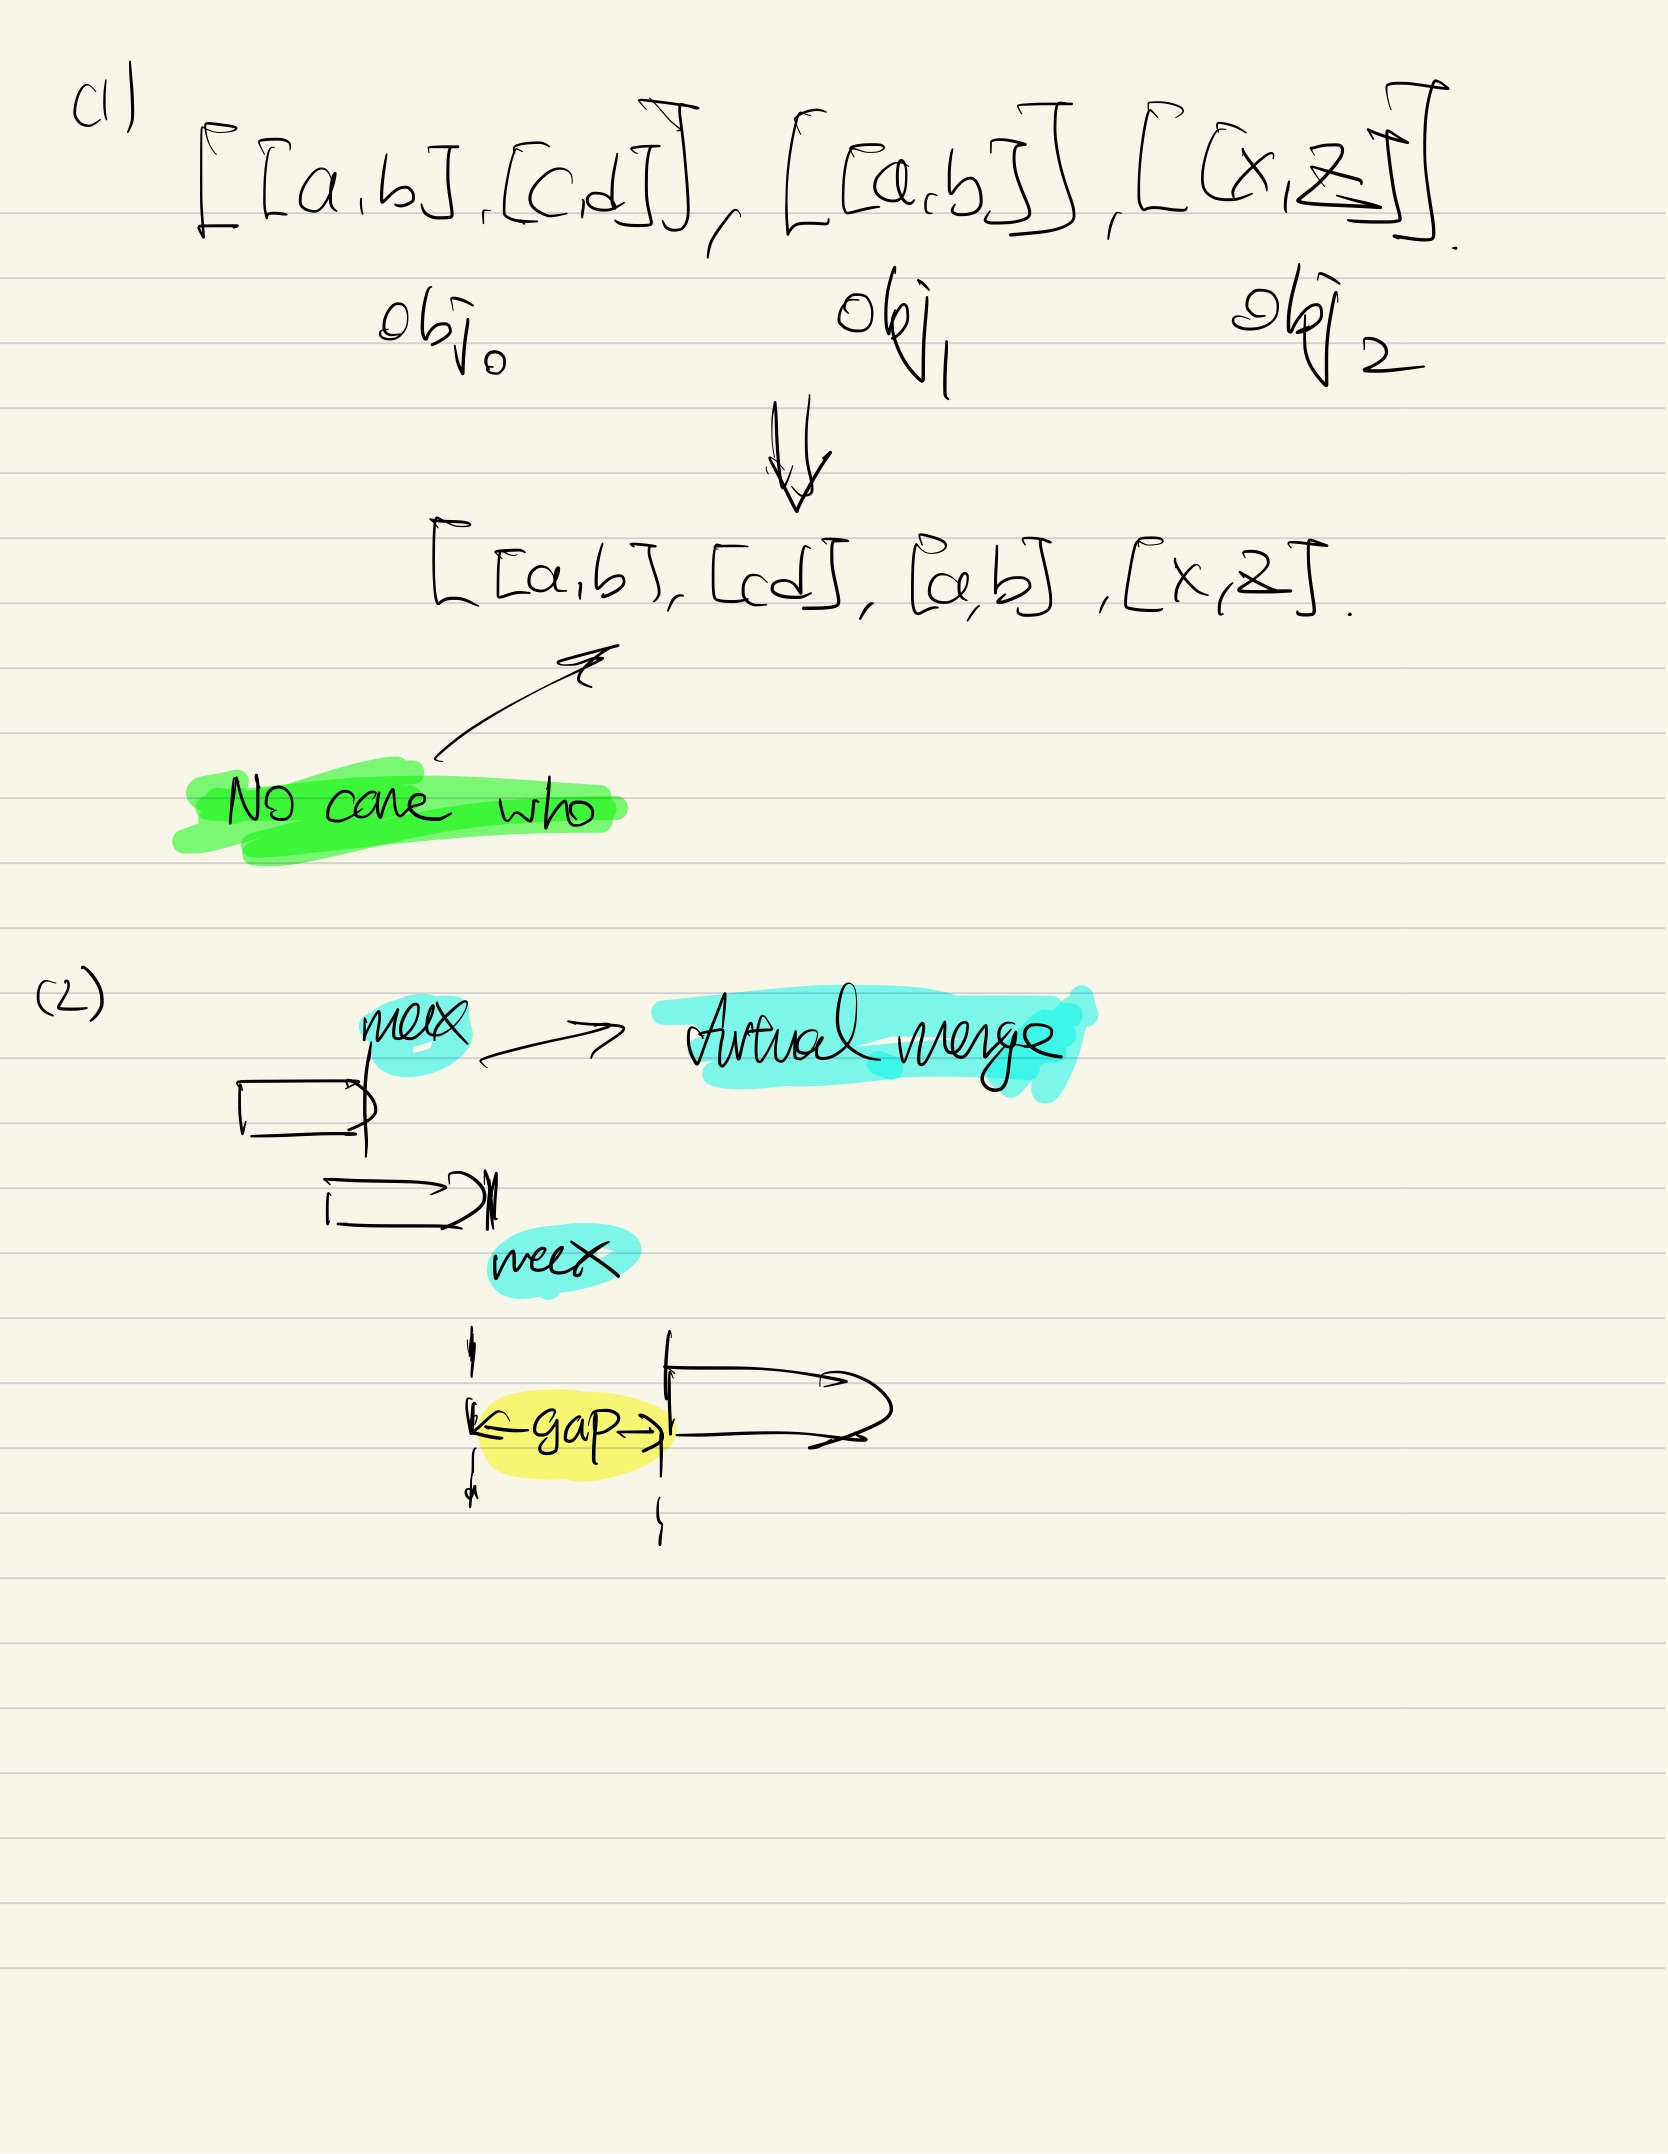 (1)
[[a,b],[c,d]], [[a,b]], [[x,z]].
obj0 obj1 obj2
[[a,b],[cd],[a,b],[x,z].
No care who
(2)
Actual merge
gap